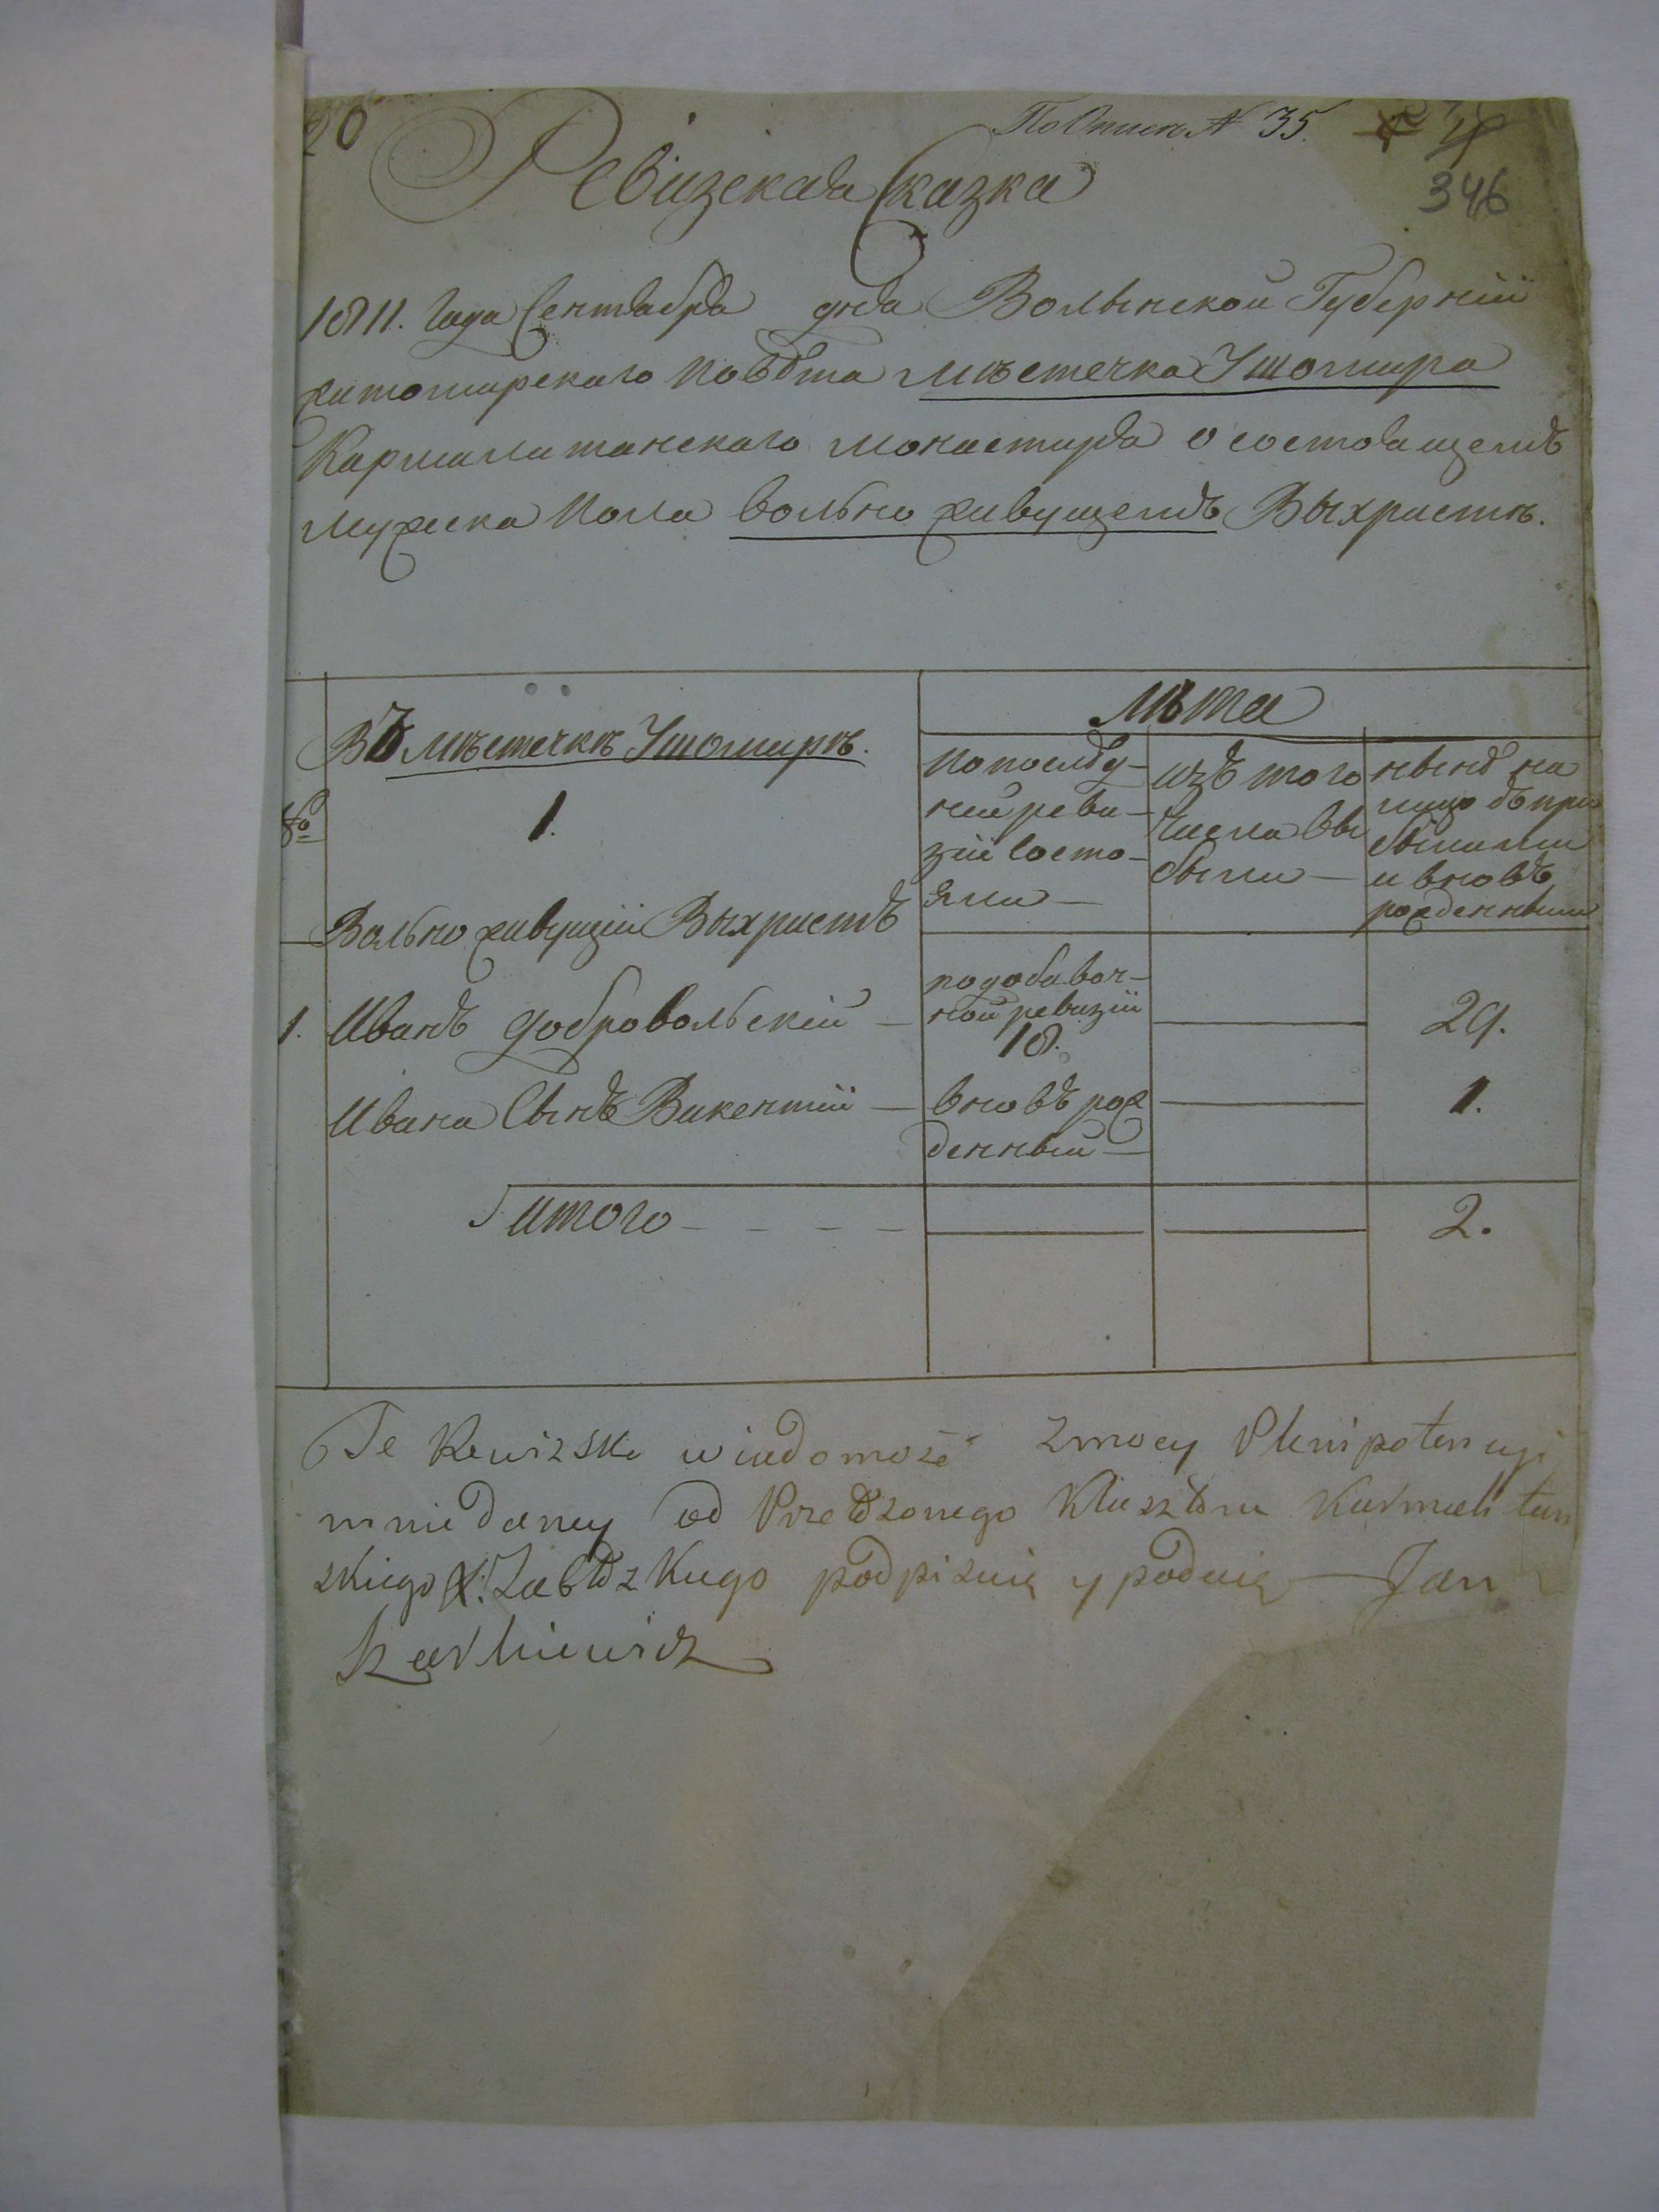 20
По Описи № 35.
346
Ревизская Сказка
1811. Года Сентября дня Волынской Губерніи
житомирскаго повѣта мѣстечка Ушомира
Кармалитанскаго монастиря о состоящемъ
мужеска пола вольно живущемъ Выхристѣ.
№
Въ мѣстечкѣ Ушомирѣ.
1.
Вольно живущій Выхристъ
Лѣта
по послѣд-
ней реви-
зіи состо-
яли
изъ того
числа вы
были
нынѣ на
лицо съ при
былыми
и вновь
рожденными
1. Иванъ Добровольскій
по добавоч-
ной ревизіи
18.
29.
Ивана Сынъ Викентій
вновь рож
денный
1.
Итого
2.
Te Rewizską wiadomość z mocy Plenipotencyi
mnie daney od Przełożonego Klasztoru Karmelitan
skiego X: Zabłockiego podpisuię y podaię Jan